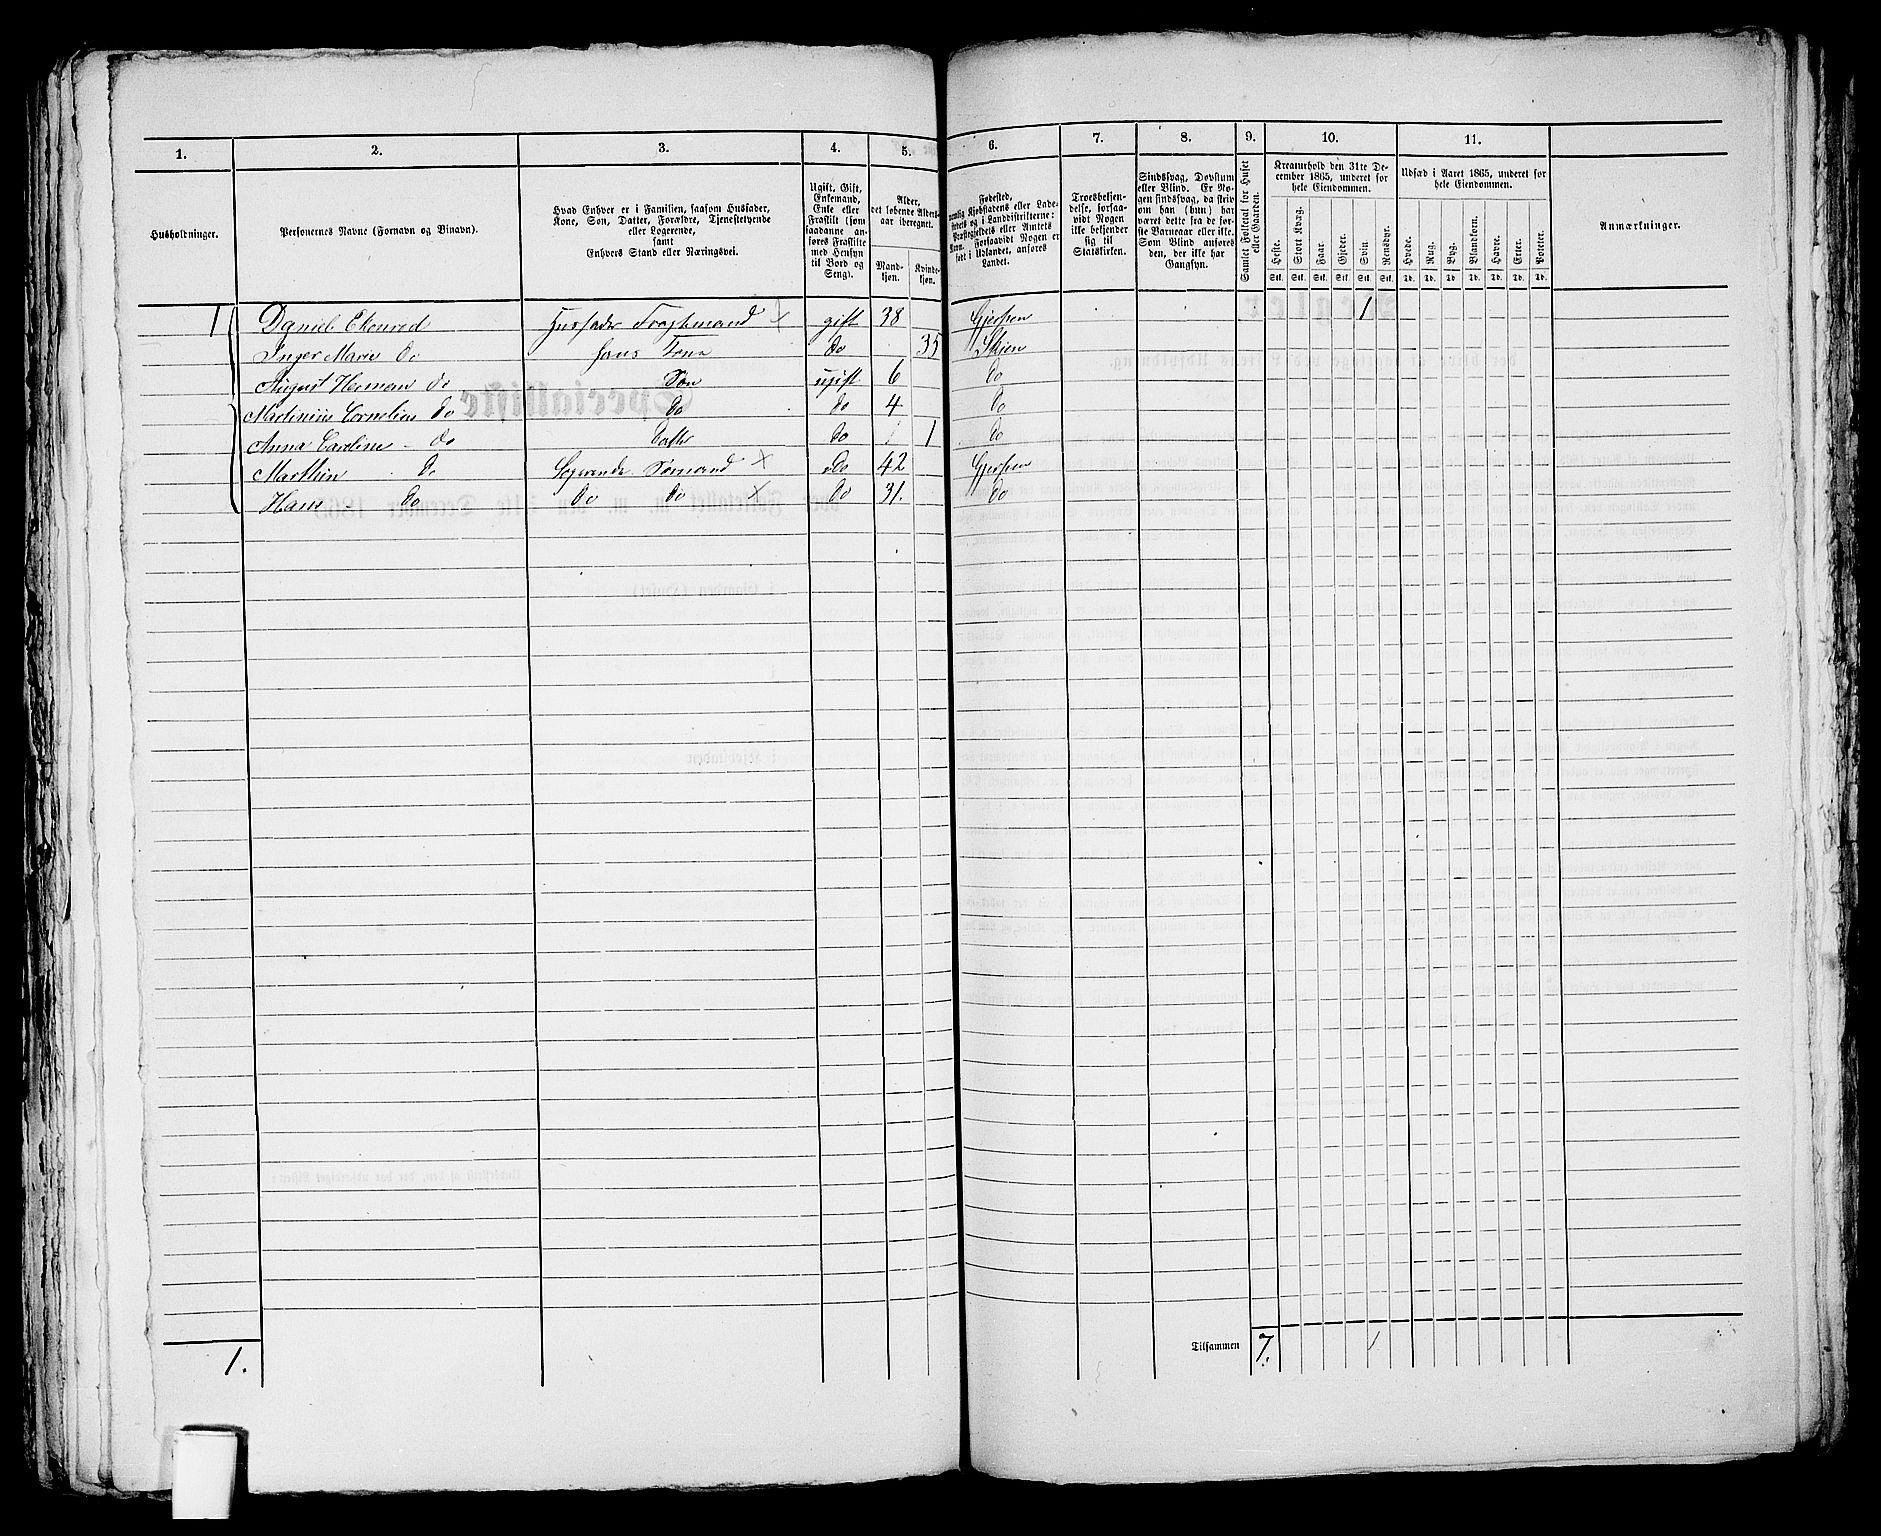 1. 2. 3. 4. 5. 6. 7. 8. 9. 10. 11.
Husholdninger.
Personernes Navne (Fornavn og Tilnavn).
Hvad Enhver er i Familien, saasom Husfader, Kone, Søn, Datter, Forældre, Tjenestetyende eller Logerende, samt Enhvers Stand eller Næringsvei.
Ugift, Gift, Enkemand, Enke eller Fraskilt (som saadanne anføres Fraskilte med Hensyn til Bord og Seng).
Alder, det løbende Alders-aar iberegnet.
Mand-kjøn. Kvinde-kjøn.
Fødested,
Troesbekjendelse, forsaavidt Nogen ikke bekjender sig til Statskirken.
Sindssvag, Døvstum eller Blind. Er Nogen sindssvag, da skrives om han (hun) har været dette fra de første Barneaar eller ikke. Som Blind anføres den, der ikke har Gangsyn.
Samlet Folketal for Huset eller Gaarden.
Kreaturhold den 31te December 1865, underet for hele Eiendommen.
Heste. Stort Kvæg. Faar. Gjeder. Svin. Rensdyr.
Stk. Stk. Stk. Stk. Stk. Stk.
Udsæd i Aaret 1865, underet for hele Eiendommen.
Hvede. Rug. Byg. Blandkorn. Havre. Erter. Poteter.
Td. Td. Td. Td. Td. Td. Td.
Anmærkninger.
1 Daniel Ekenrød Husfader Fragtmand x gift 38 Gjerpen 1
Inger Marie do hans Kone do 35 Skien
August Herman do Søn ugift 6 do
Martinius Cornelius do do do 4 do
Anna Caroline do Datter do 1 do
Marthin do Logerende Sømand x do 42 Gjerpen
Hans do do do x do 31. do
1. Tilsammen 7. 1